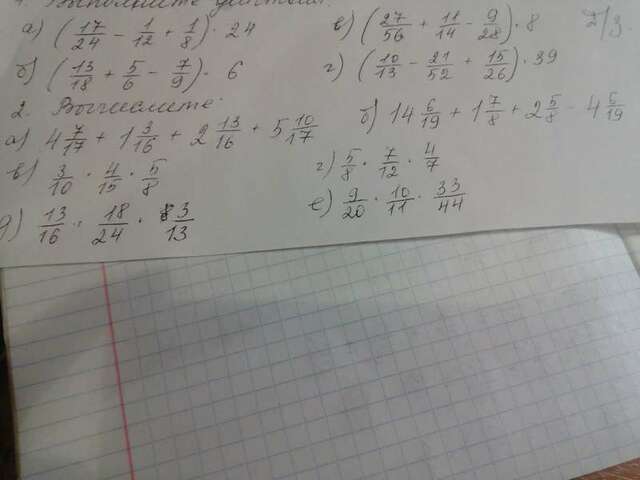 1. Выполните действия:
а) (17/24 − 1/12 + 1/8) · 24
в) (27/56 + 11/14 − 9/28) · 8
Д/З.
б) (13/18 + 5/6 − 7/9) · 6
г) (10/13 − 21/52 + 15/26) · 39
2. Вычислите:
а) 4 7/17 + 1 3/16 + 2 13/16 + 5 10/17
б) 14 6/19 + 1 7/8 + 2 5/8 − 4 6/19
в) 3/10 · 4/15 · 5/8
г) 5/8 · 7/12 · 4/7
д) 13/16 · 18/24 · 3/13
е) 9/20 · 10/11 · 33/44